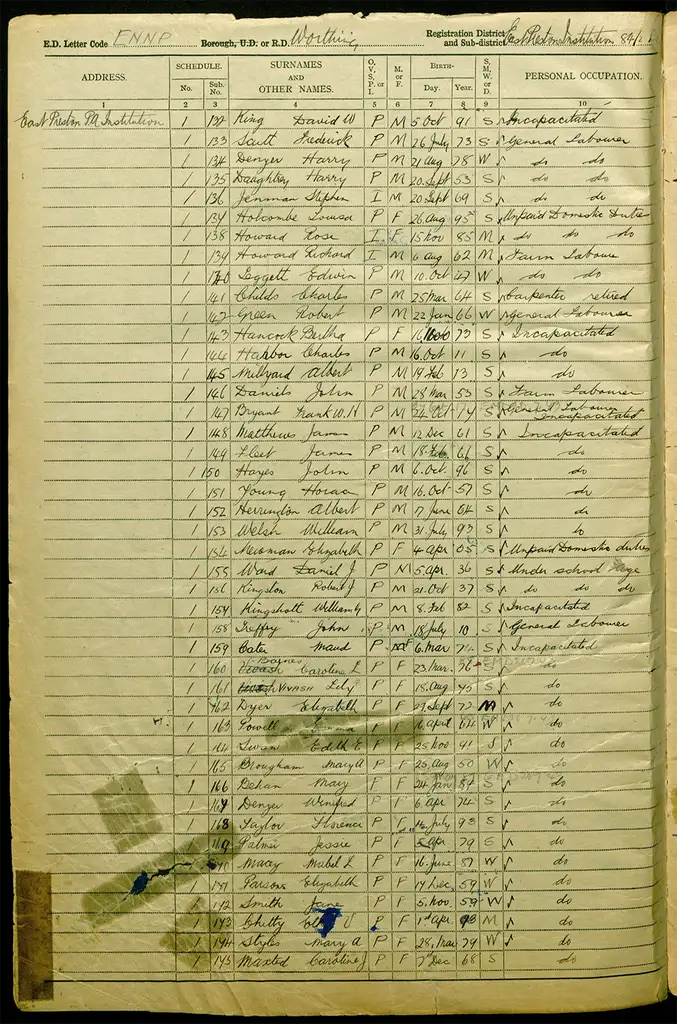 E.D. Letter Code ENNP Borough, U.D. or R.D. Worthing Registration District and Sub-district East Preston Institution 84/
ADDRESS. SCHEDULE. SURNAMES AND OTHER NAMES. O, V, S, P. or I. M. or F. BIRTH- S, M, W. or D. PERSONAL OCCUPATION.
No. Sub. No. Day. Year.
1 2 3 4 5 6 7 8 9 10
East Preston PA Institution 1 132 King David W P M 5 Oct 91 S Incapacitated
1 133 Scutt Frederick P M 26 July 73 S General Labourer
1 134 Denyer Harry P M 21 Aug 78 W do do
1 135 Daughtrey Harry P M 20 Sept 53 S do do
1 136 Jenman Stephen I M 20 Sept 69 S do do
1 137 Holcombe Louisa P F 26 Aug 95 S Unpaid Domestic Duties
1 138 Howard Rose I F 15 Nov 85 M do do do
1 139 Howard Richard I M 6 Aug 62 M Farm Laboure
1 140 Leggett Edwin P M 10 Oct 67 W do do
1 141 Childs Charles P M 25 Mar 64 S Carpenter retired
1 142 Green Robert P M 22 Jan 66 W General Labourer
1 143 Hancock Bertha P F 16 73 S Incapacitated
1 144 Harbor Charles P M 16 Oct 11 S do
1 145 Millyard Albert P M 19 Feb 13 S do
1 146 Daniels John P M 28 Mar 53 S Farm Labourer
1 147 Bryant Frank W. H P M 24 Oct 74 S General Labourer Incapacitated
1 148 Matthews James P M 12 Dec 61 S Incapacitated
1 149 Fleet James P M 18 Feb 66 S do
1 150 Hayes John P M 6 Oct 96 S do
1 151 Young Horace P M 16 Oct 57 S do
1 152 Herrington Albert P M 17 June 64 S do
1 153 Welsh William P M 31 July 93 S do
1 154 Newman Elizabeth P F 4 Apr 05 S Unpaid Domestic duties
1 155 Ward Daniel J P M 5 Apr 36 S Under school age
1 156 Kingston Robert J P M 21 Oct 37 S do do do
1 157 Kingshott William G P M 8 Feb 82 S Incapacitated
1 158 Treffry John P M 18 July 10 S General Labourer
1 159 Cater Maud P F 6 Mar S Incapacitated
1 160 Baines Caroline L P F 23 Mar 76 S do
1 161 VIVASH Lily P F 18 Aug 95 S do
1 162 Dyer Elizabeth P F 27 Sept 72 M do
1 163 Powell Emma P F 6 April 64 W do
1 164 Swan Edith E P F 25 Nov 91 S do
1 165 Brougham Mary A P F 25 Aug 50 W do
1 166 Behan Mary P F 24 Jan 84 S do
1 167 Denyer Winifred P F 6 Apr 74 S do
1 168 Taylor Florence P F 14 July 98 S do
1 169 Palmer Jessie P F 5 Apr 79 S do
1 170 Macey Mabel L P F 16 June 87 W do
1 171 Parsons Elizabeth P F 14 Dec 59 W do
1 172 Smith Jane P F 5 Nov 59 W do
1 173 Chitty J P F 1st Apr 98 M do
1 174 Styles Mary A P F 28 Mar 79 W do
1 175 Maxted Caroline J P F 7th Dec 68 S do